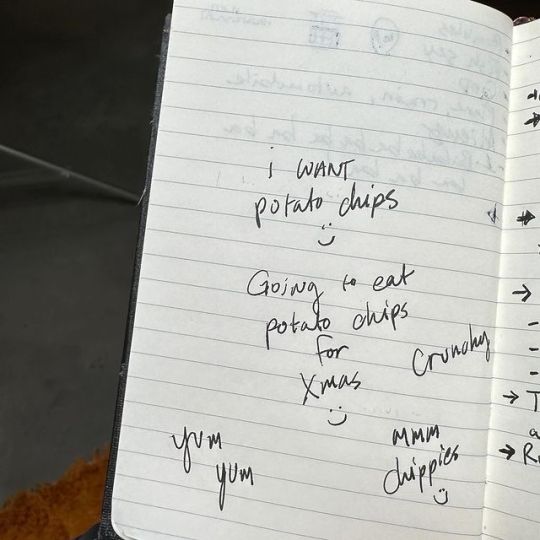 i WANT
potato chips
Going to eat
potato chips
for
Xmas
Crunchy
yum
yum
mmm
chippies